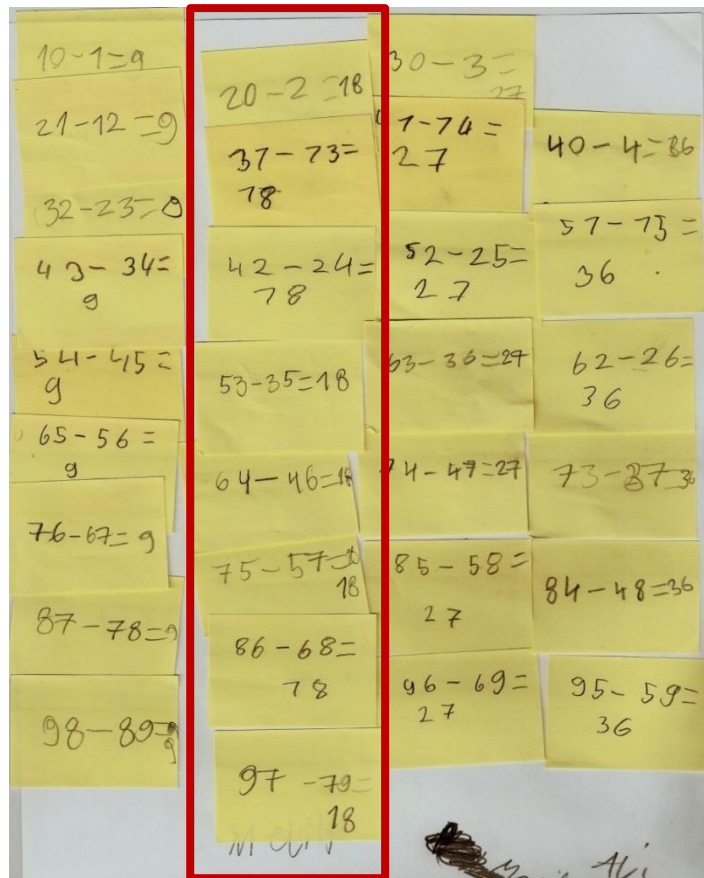 10-1=9
21-12=9
32-23=9
43-34=
9
54-45=
9
65-56=
9
76-67=9
87-78=9
98-89=9
20-2=18
31-13=
18
42-24=
18
53-35=18
64-46=18
75-57=
18
86-68=
18
97-79=
18
30-3=
27
41-14=
27
52-25=
27
63-36=27
74-47=27
85-58=
27
96-69=
27
40-4=36
51-15=
36
62-26=
36
73-37=36
84-48=36
95-59=
36
Ali